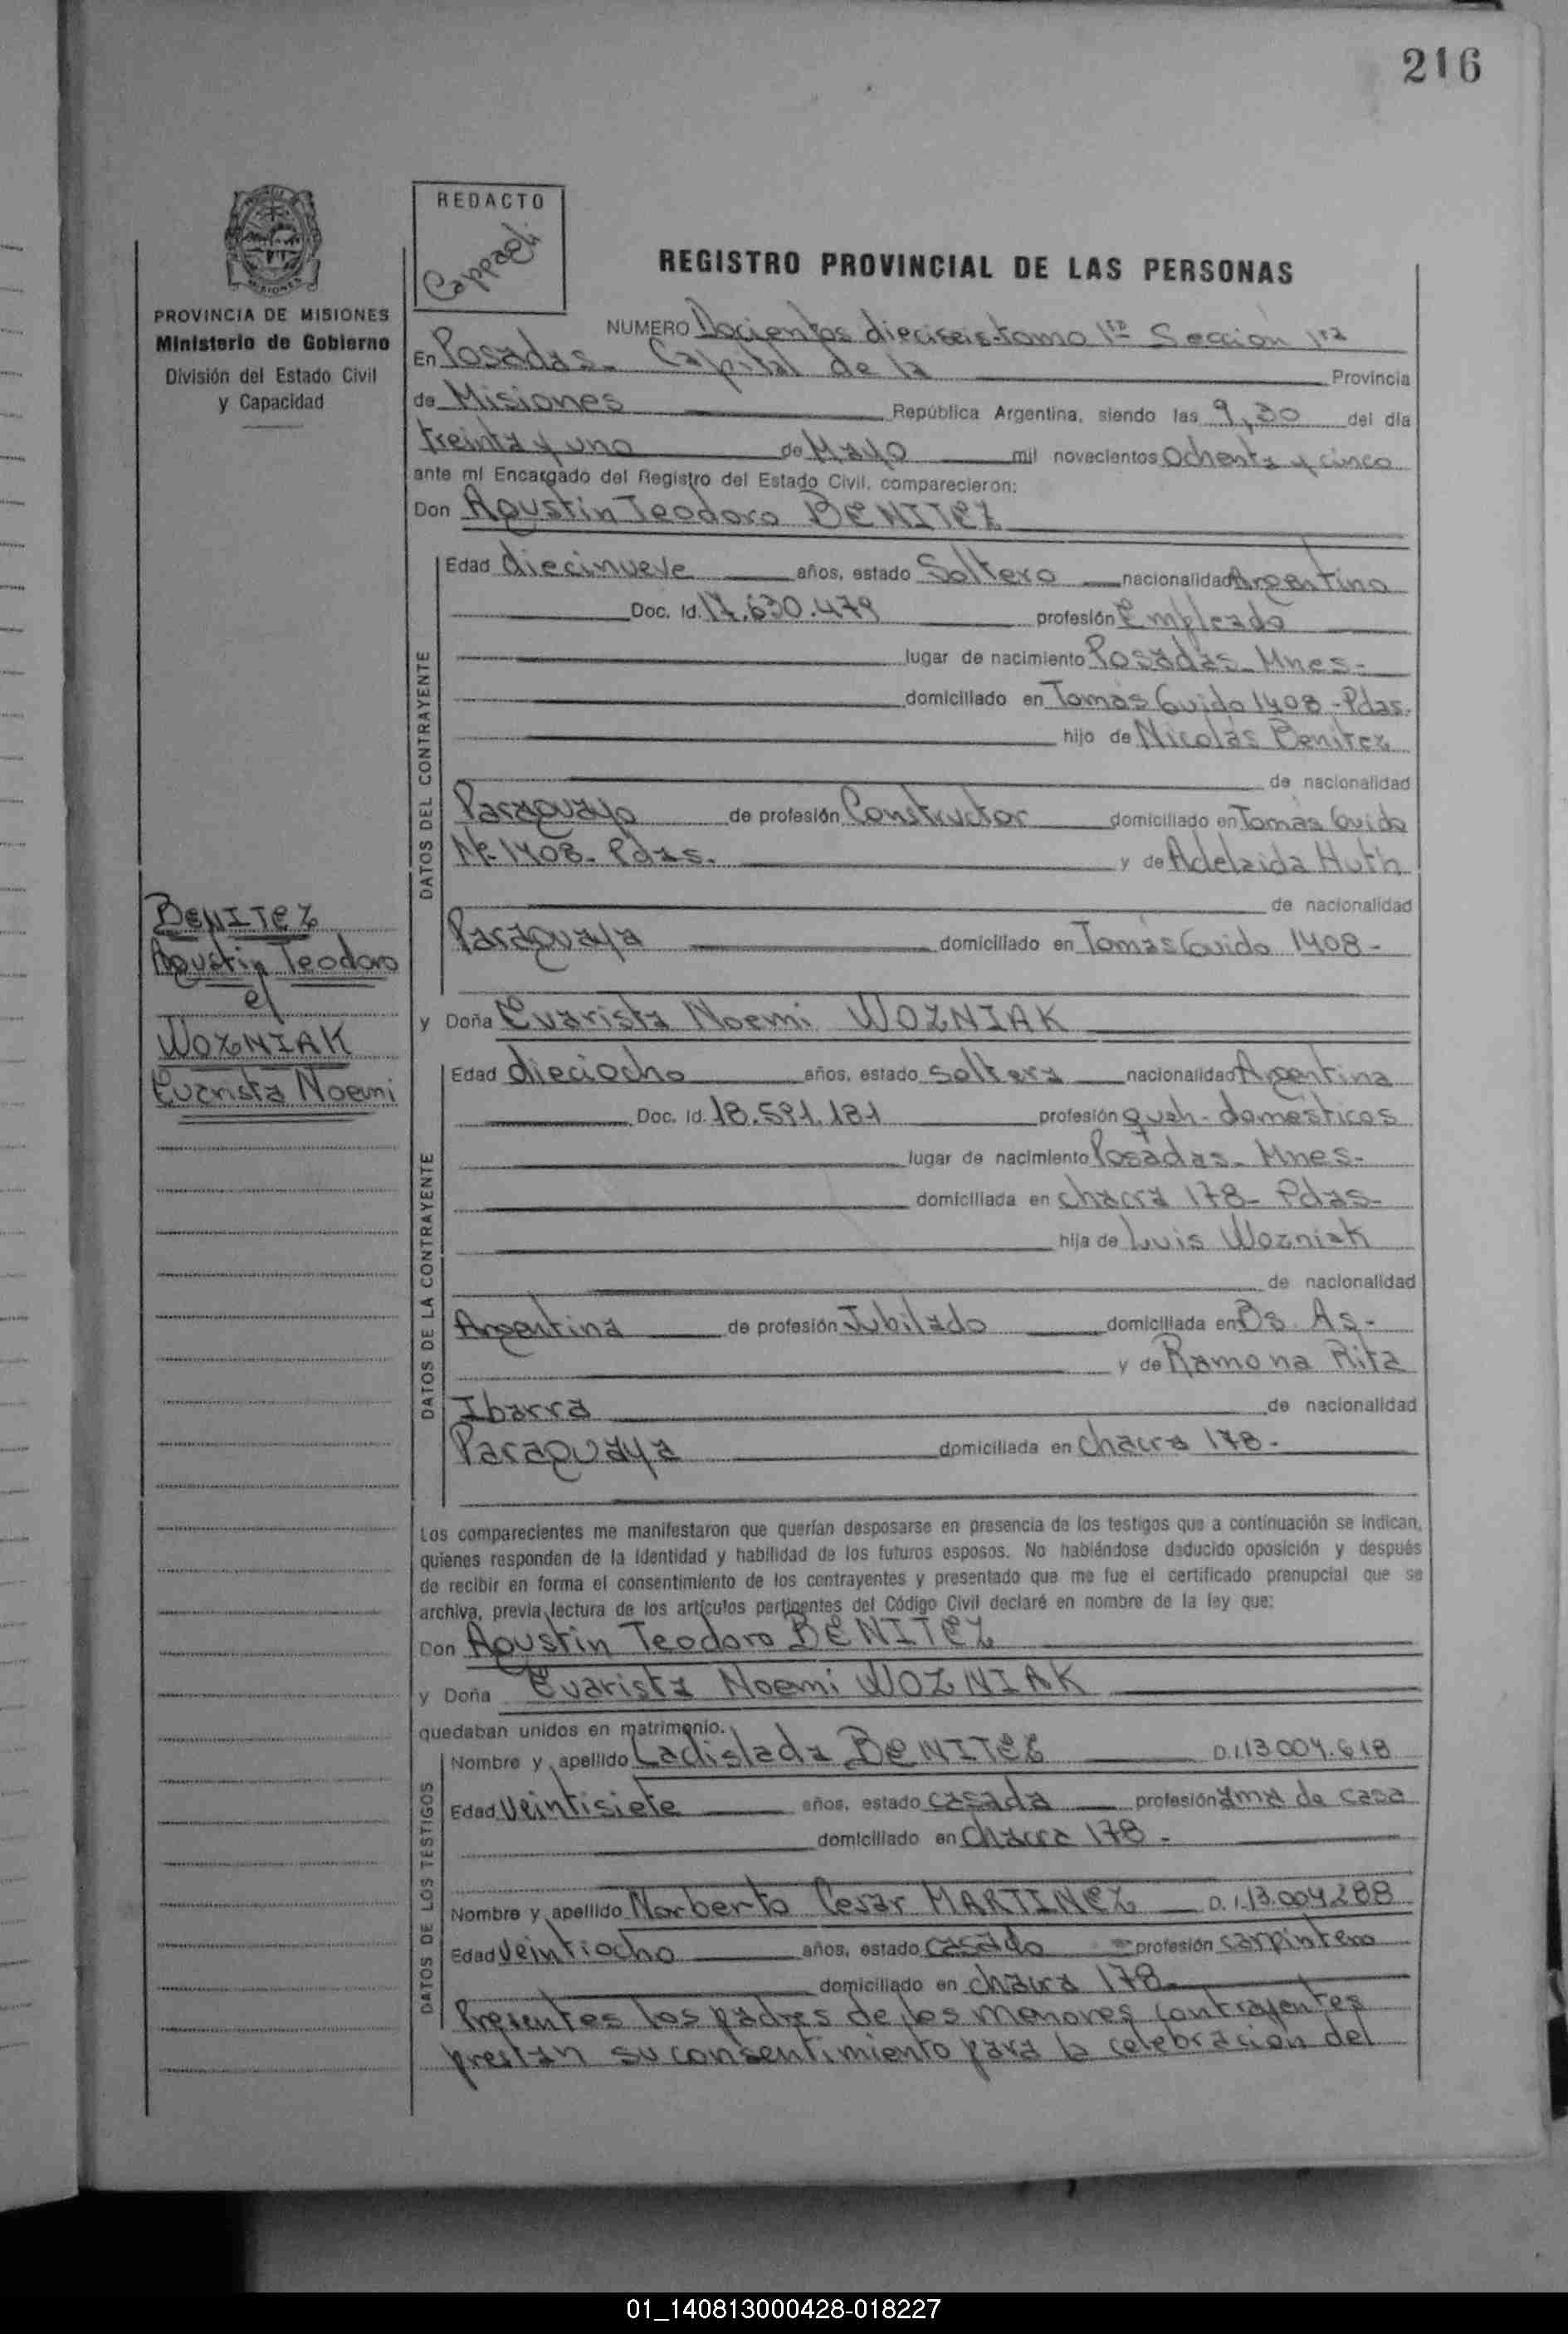 216
REDACTO
REGISTRO PROVINCIAL DE LAS PERSONAS
PROVINCIA DE MISIONES
Ministerio de Gobierno
División del Estado Civil
y Capacidad
NUMERO Docientos dieciseis tomo 1ro Sección 1ra
En Posadas - Capital de la Provincia
de Misiones República Argentina, siendo las 9,30 del día
treinta y uno de Mayo mil novecientos Ochenta y cinco
ante mí Encargado del Registro del Estado Civil, comparecieron:
Don Agustin Teodoro BENITEZ
Edad diecinueve años, estado Soltero nacionalidad Argentino
Doc. Id. 17.630.479 profesión Empleado
lugar de nacimiento Posadas - Mnes -
domiciliado en Tomás Guido 1408 - Pdas.
hijo de Nicolás Benitez
de nacionalidad
Paraguayo de profesión Constructor domiciliado en Tomás Guido
Nº 1408 - Pdas. y de Adelaida Huth
de nacionalidad
Paraguaya domiciliado en Tomás Guido 1408 -
DATOS DEL CONTRAYENTE
BENITEZ
Agustin Teodoro
c/
WOZNIAK
Evarista Noemi
y Doña Evarista Noemi WOZNIAK
Edad dieciocho años, estado soltera nacionalidad Argentina
Doc. Id. 18.591.181 profesión queh - domésticos
lugar de nacimiento Posadas - Mnes -
domiciliada en chacra 178 - Pdas -
hija de Luis Wozniak
de nacionalidad
Argentina de profesión Jubilado domiciliada en Bs. As -
y de Ramona Rita
Ibarra de nacionalidad
Paraguaya domiciliada en chacra 178 -
DATOS DE LA CONTRAYENTE
Los comparecientes me manifestaron que querían desposarse en presencia de los testigos que a continuación se indican,
quienes responden de la identidad y habilidad de los futuros esposos. No habiéndose deducido oposición y después
de recibir en forma el consentimiento de los contrayentes y presentado que me fue el certificado prenupcial que se
archiva, previa lectura de los artículos pertinentes del Código Civil declaré en nombre de la ley que:
Don Agustin Teodoro BENITEZ
y Doña Evarista Noemi WOZNIAK
quedaban unidos en matrimonio.
Nombre y apellido Ladislada BENITEZ D.I. 13.004.618
Edad Veintisiete años, estado casada profesión ama de casa
domiciliado en chacra 178 -
Nombre y apellido Norberto Cesar MARTINEZ D.I. 13.004.288
Edad Veintiocho años, estado casado profesión carpintero
domiciliado en chacra 178 -
DATOS DE LOS TESTIGOS
Presentes los padres de los menores contrayentes
prestan su consentimiento para la celebración del
01_140813000428-018227